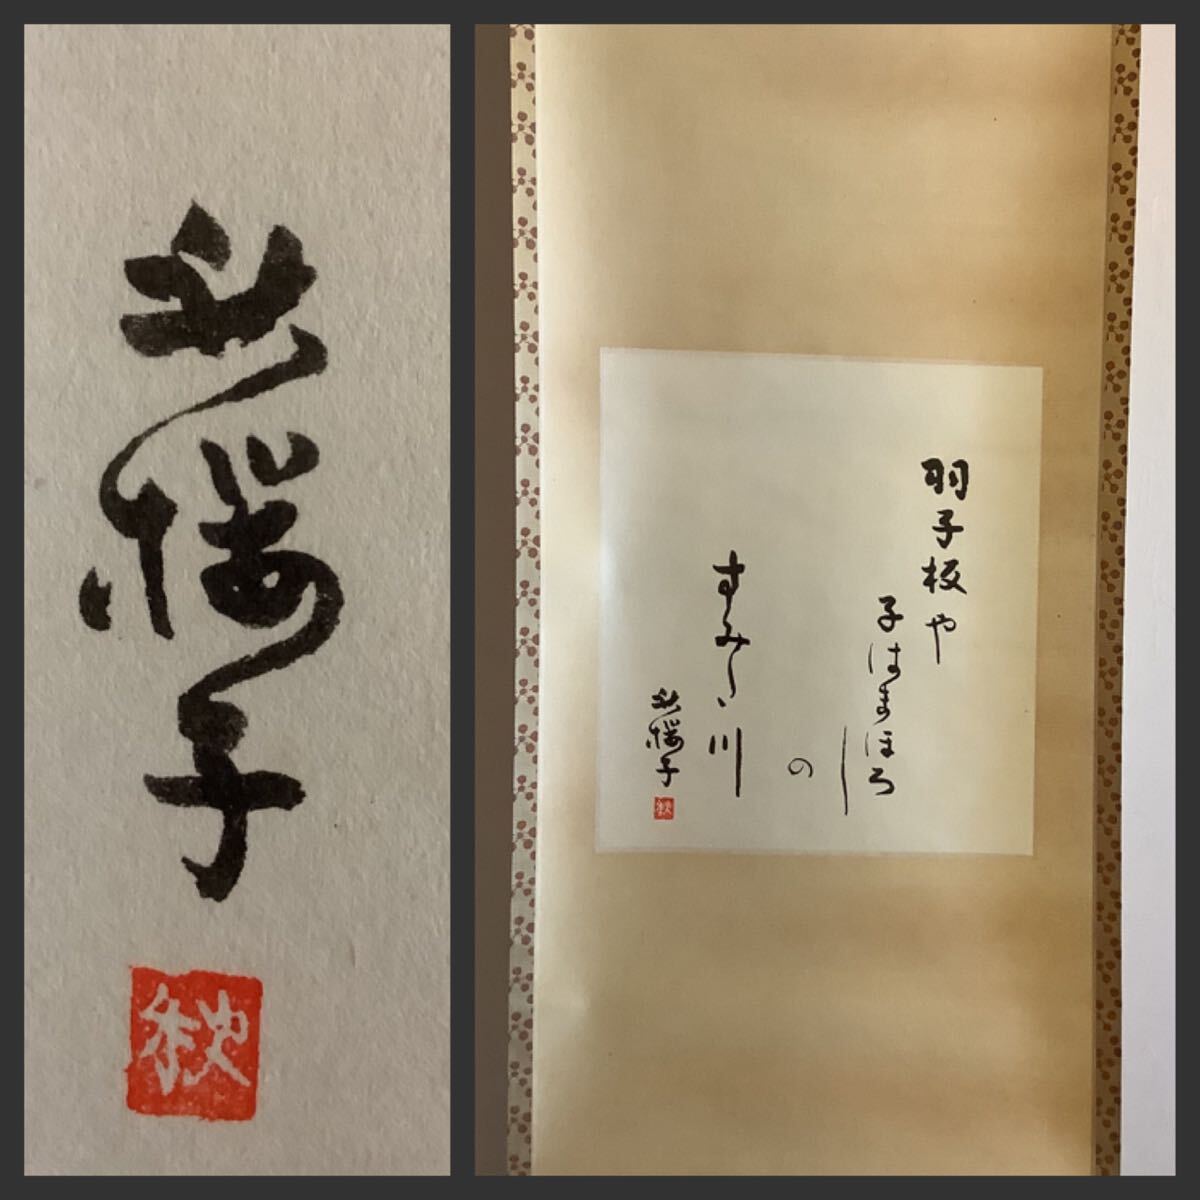 秋櫻子
秋
羽子板や
子はまほろ
し
の
すみた川
秋櫻子
秋